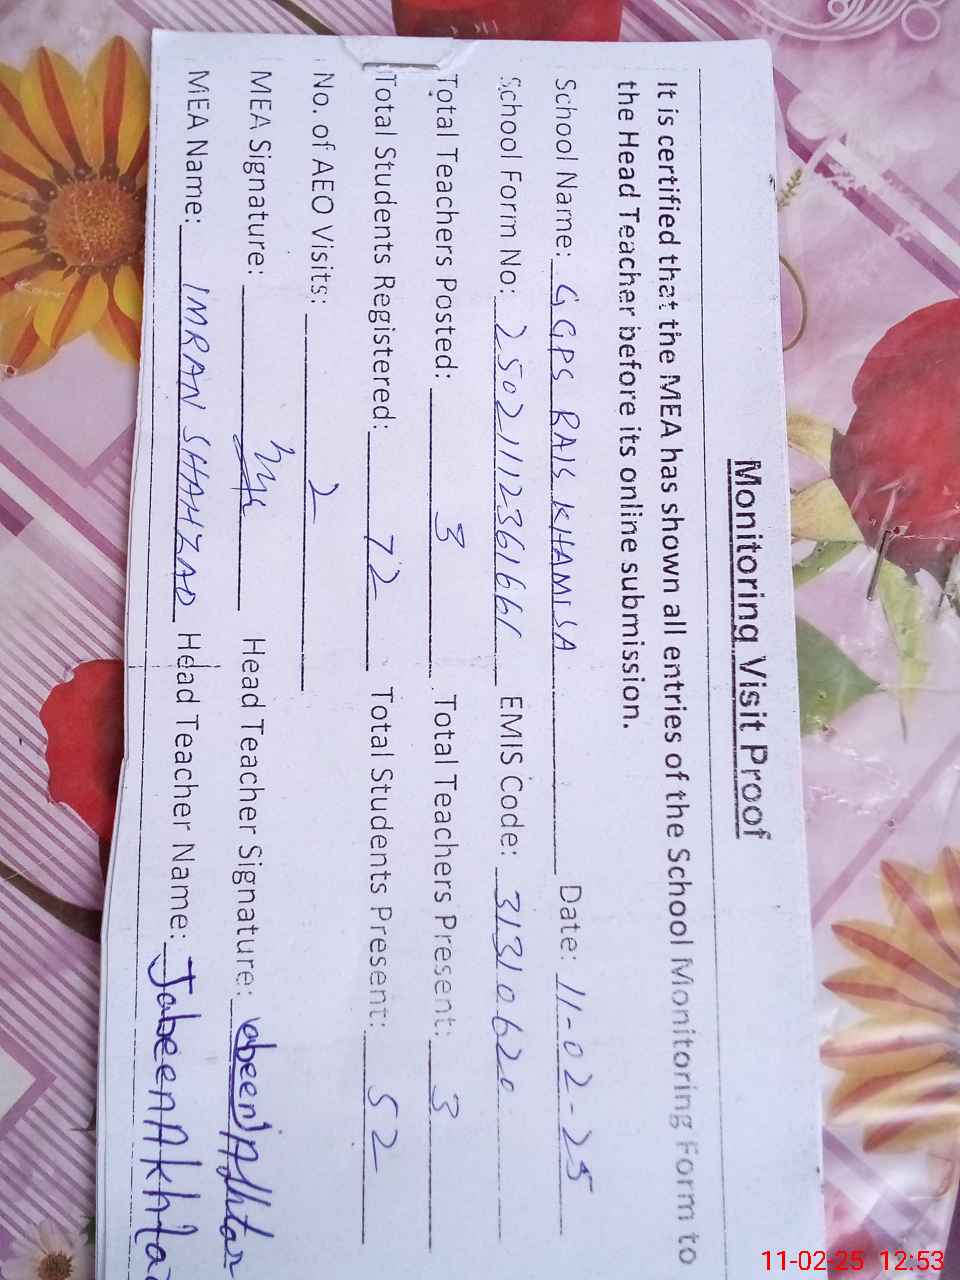 Monitoring Visit Proof
It is certified that the MEA has shown all entries of the School Monitoring Form to
the Head Teacher before its online submission.
School Name: GGPS RAIS KHAMISA Date: 11-02-25
School Form No: 2502111236 16661 EMIS Code: 31310620
Total Teachers Posted: 3 Total Teachers Present: 3
Total Students Registered: 72 Total Students Present: 52
No. of AEO Visits: 2
MEA Signature: Head Teacher Signature:
MEA Name: IMRAN SHAHZAD Head Teacher Name: Jabeen Akhta
11-02-25 12:53